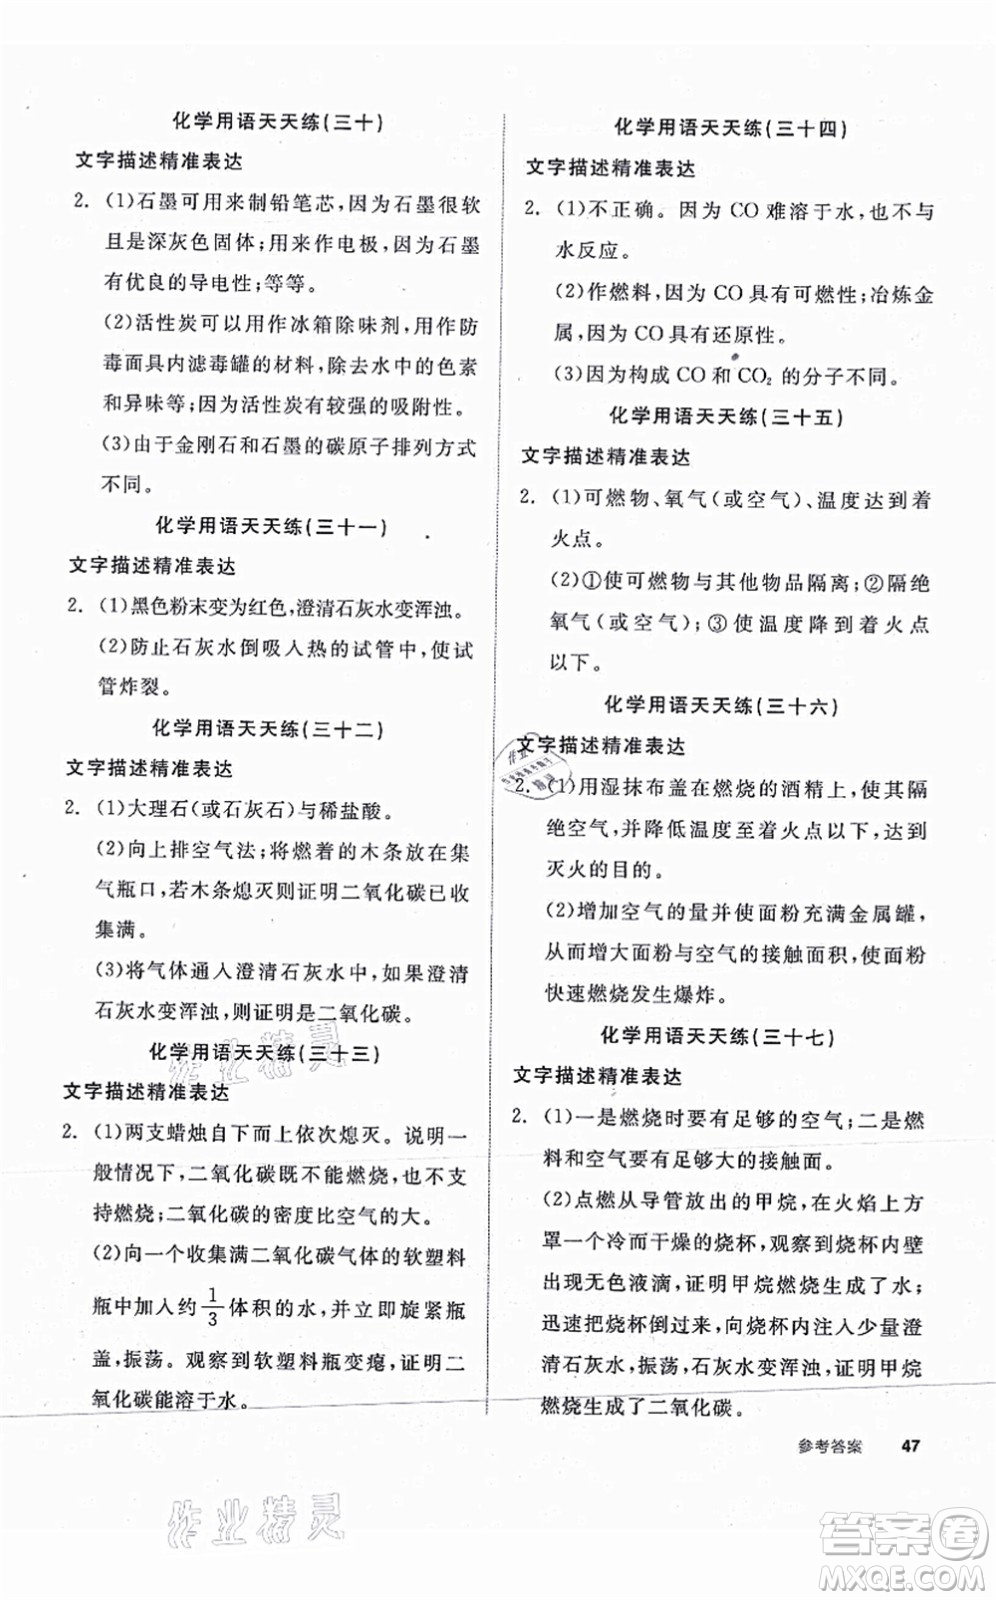 化学用语天天练(三十)
文字描述精准表达
2. (1)石墨可用来制铅笔芯,因为石墨很软
且是深灰色固体;用来作电极,因为石墨
有优良的导电性;等等。
(2)活性炭可以用作冰箱除味剂,用作防
毒面具内滤毒罐的材料,除去水中的色素
和异味等;因为活性炭有较强的吸附性。
(3)由于金刚石和石墨的碳原子排列方式
不同。
化学用语天天练(三十一)
文字描述精准表达
2. (1)黑色粉末变为红色,澄清石灰水变浑浊。
(2)防止石灰水倒吸入热的试管中,使试
管炸裂。
化学用语天天练(三十二)
文字描述精准表达
2. (1)大理石(或石灰石)与稀盐酸。
(2)向上排空气法;将燃着的木条放在集
气瓶口,若木条熄灭则证明二氧化碳已收
集满。
(3)将气体通入澄清石灰水中,如果澄清
石灰水变浑浊,则证明是二氧化碳。
化学用语天天练(三十三)
文字描述精准表达
2. (1)两支蜡烛自下而上依次熄灭。说明一
般情况下,二氧化碳既不能燃烧,也不支
持燃烧;二氧化碳的密度比空气的大。
(2)向一个收集满二氧化碳气体的软塑料
瓶中加入约1/3体积的水,并立即旋紧瓶
盖,振荡。观察到软塑料瓶变瘪,证明二
氧化碳能溶于水。
化学用语天天练(三十四)
文字描述精准表达
2. (1)不正确。因为 CO 难溶于水,也不与
水反应。
(2)作燃料,因为 CO 具有可燃性;冶炼金
属,因为 CO 具有还原性。
(3)因为构成 CO 和 CO₂ 的分子不同。
化学用语天天练(三十五)
文字描述精准表达
2. (1)可燃物、氧气(或空气)、温度达到着
火点。
(2)①使可燃物与其他物品隔离;②隔绝
氧气(或空气);③使温度降到着火点
以下。
化学用语天天练(三十六)
文字描述精准表达
2. (1)用湿抹布盖在燃烧的酒精上,使其隔
绝空气,并降低温度至着火点以下,达到
灭火的目的。
(2)增加空气的量并使面粉充满金属罐,
从而增大面粉与空气的接触面积,使面粉
快速燃烧发生爆炸。
化学用语天天练(三十七)
文字描述精准表达
2. (1)一是燃烧时要有足够的空气;二是燃
料和空气要有足够大的接触面。
(2)点燃从导管放出的甲烷,在火焰上方
罩一个冷而干燥的烧杯,观察到烧杯内壁
出现无色液滴,证明甲烷燃烧生成了水;
迅速把烧杯倒过来,向烧杯内注入少量澄
清石灰水,振荡,石灰水变浑浊,证明甲烷
燃烧生成了二氧化碳。
参考答案 47
作业精灵
作业精灵
答案卷
MXQE.COM